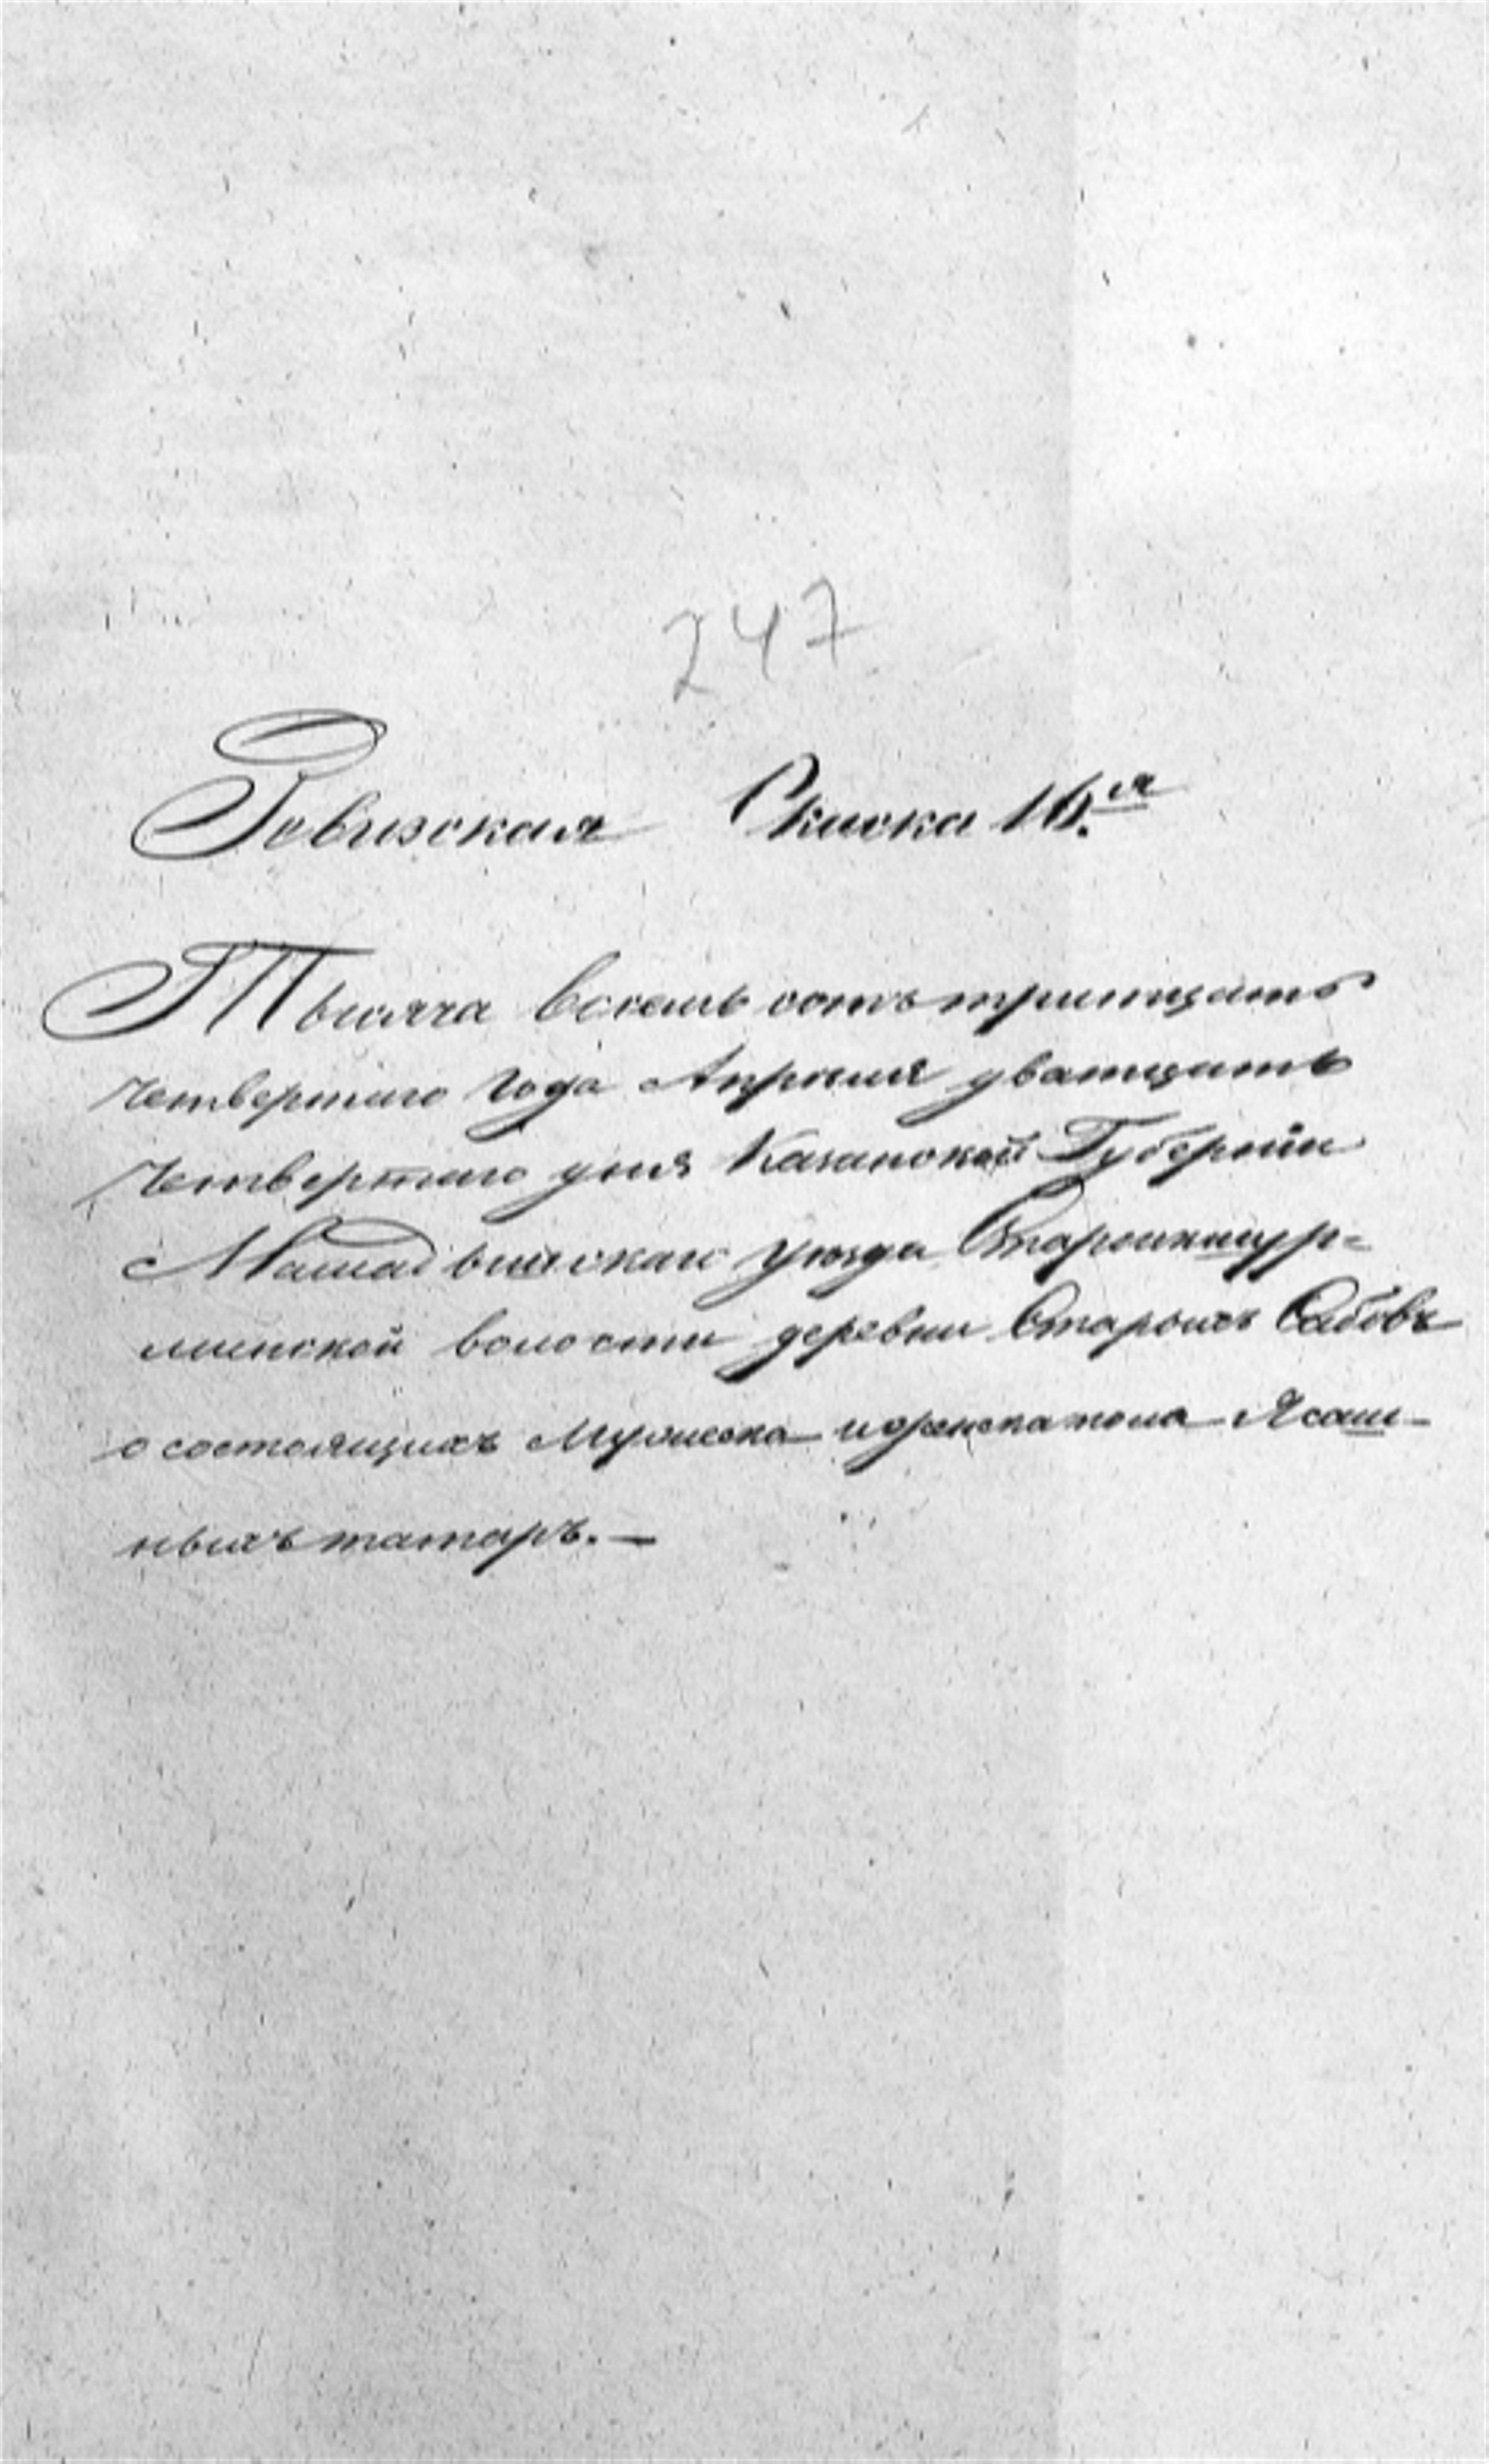 247
Ревизская Скаска 16.ая
Тысяча восемь сотъ тритцать
четвертаго года Апреля дватцать
четвертаго дня Казанской Губернiи
Мамадышскаго уезда
минской волости деревни Старыхъ Сабовъ
о состоящихъ мужеска и женска пола Ясаш-
ныхъ татаръ. —